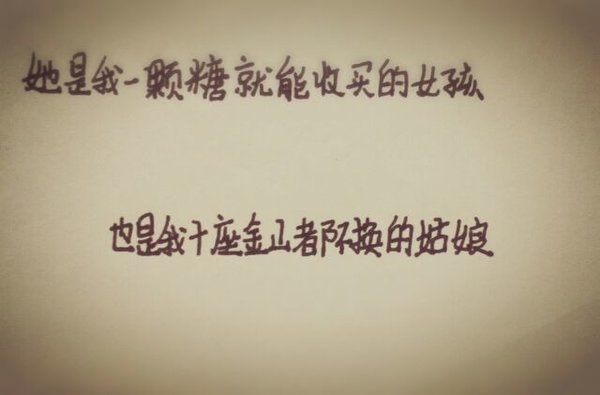 她是我一颗糖就能收买的女孩
也是我十座金山都不换的姑娘